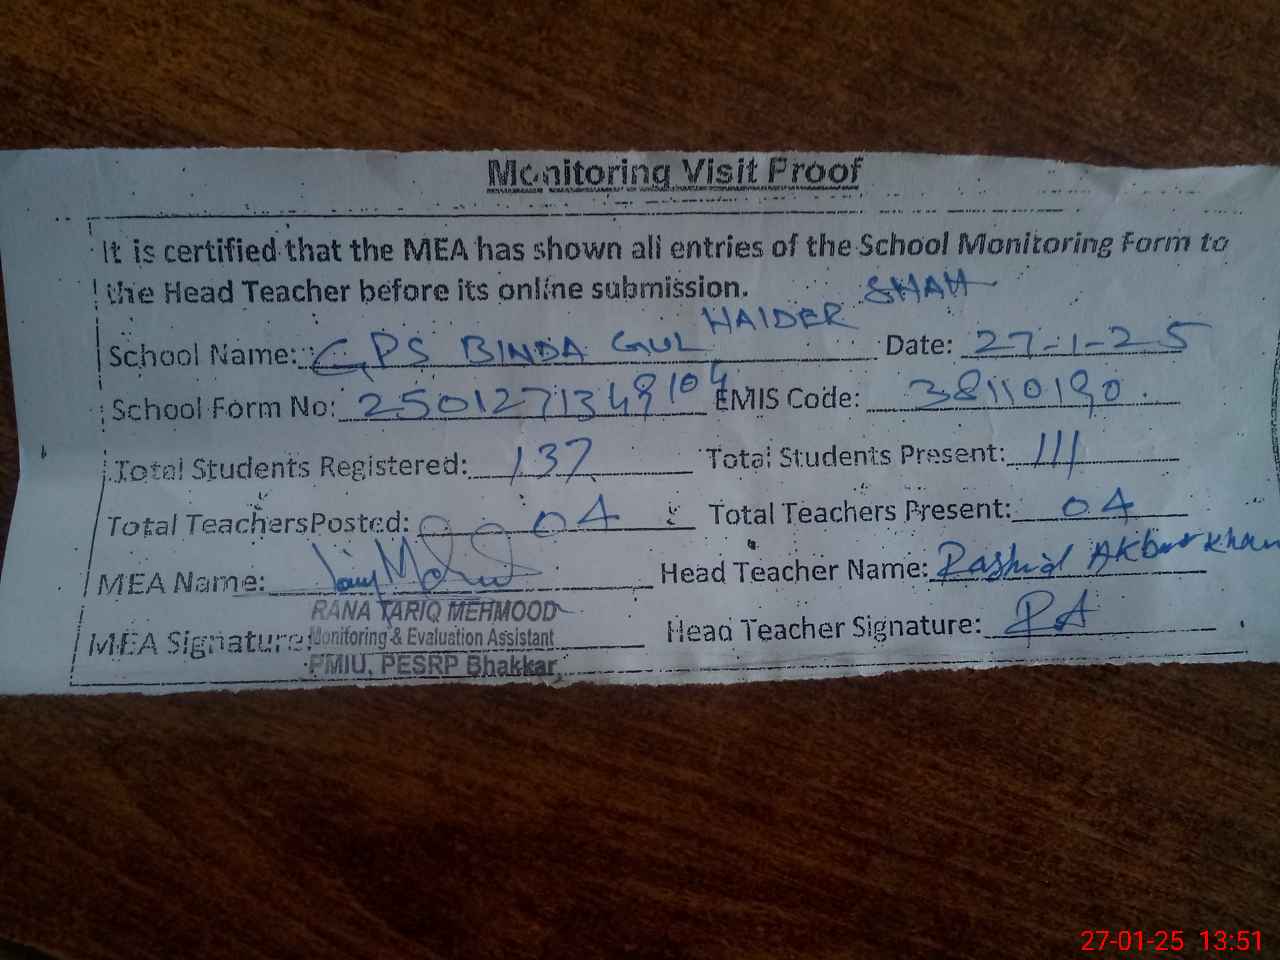 Monitoring Visit Proof
It is certified that the MEA has shown all entries of the School Monitoring Form to
the Head Teacher before its online submission.
School Name: GPS BINDA GUL HAIDER SHAH Date: 27-1-25
School Form No: 2501271349104 EMIS Code: 38110190
Total Students Registered: 137 Total Students Present: 111
Total Teachers Posted: 04 Total Teachers Present: 04
MEA Name: Head Teacher Name: Rashid Akbar Khan
RANA TARIQ MEHMOOD
MEA Signature: Monitoring & Evaluation Assistant Head Teacher Signature: RA
PMIU, PESRP Bhakkar
27-01-25 13:51